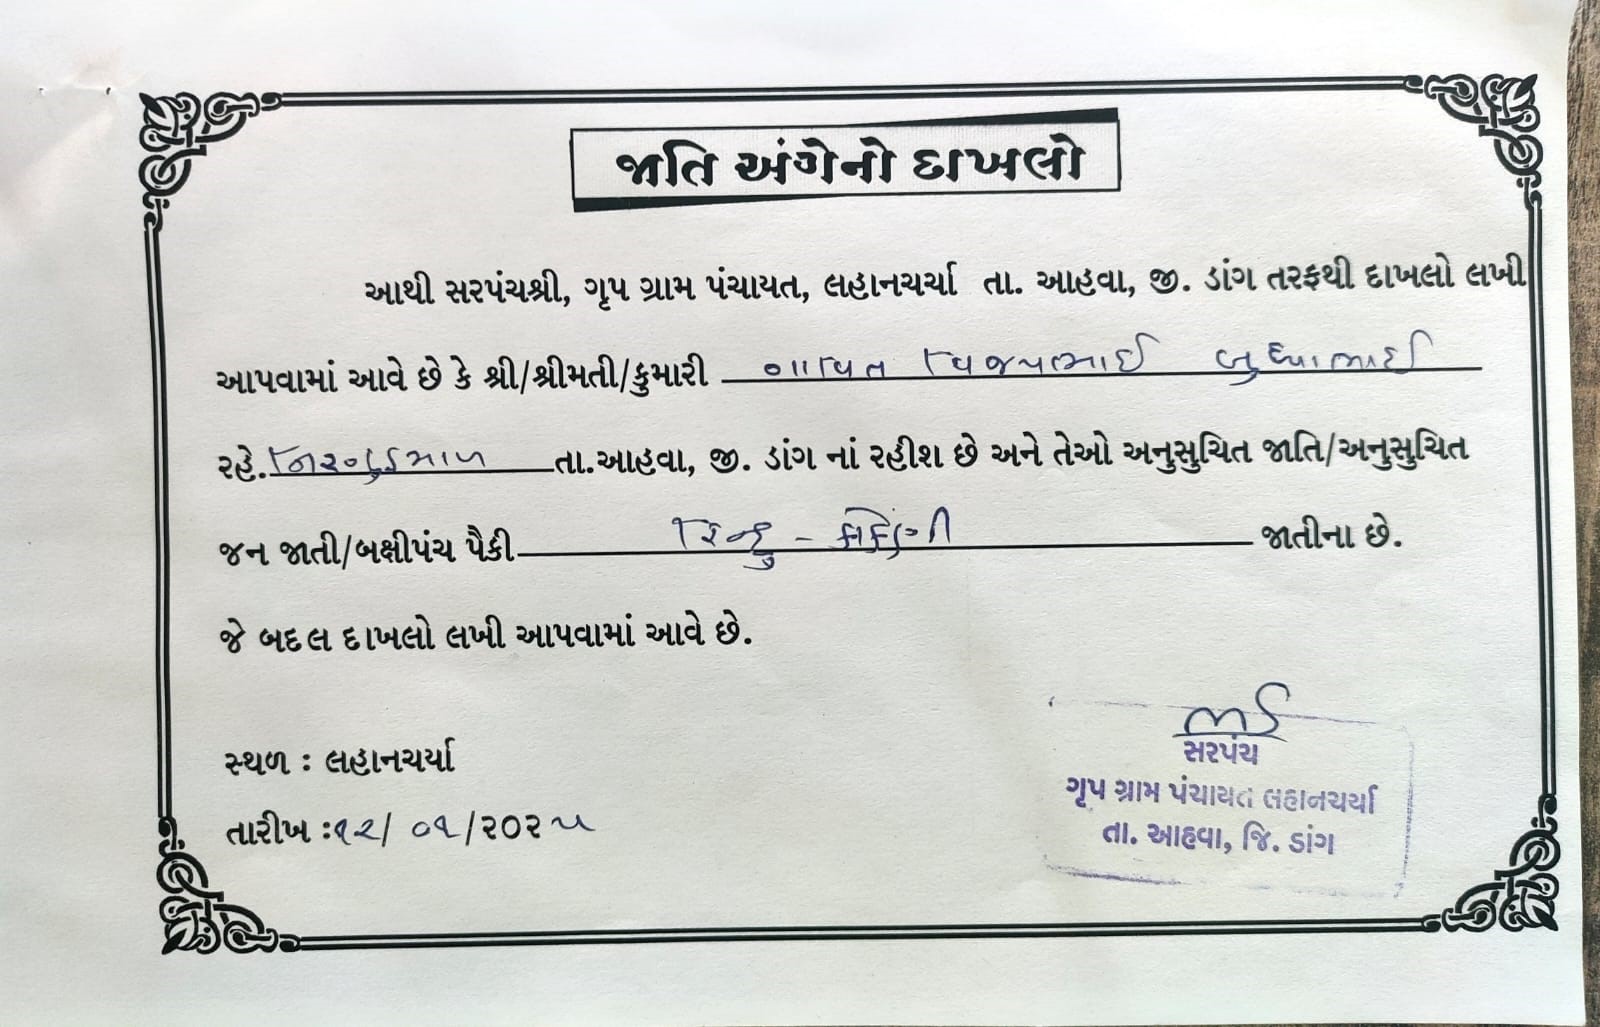 જાતિ અંગેનો દાખલો
આથી સરપંચશ્રી, ગૃપ ગ્રામ પંચાયત, લહાનચર્યા તા. આહવા, જી. ડાંગ તરફથી દાખલો લખી
આપવામાં આવે છે કે શ્રી/શ્રીમતી/કુમારી ગાવિત વિજયભાઈ બુધ્યાભાઈ
રહે. તા.આહવા, જી. ડાંગ નાં રહીશ છે અને તેઓ અનુસુચિત જાતિ/અનુસુચિત
જન જાતી/બક્ષીપંચ પૈકી હિન્દુ - જાતીના છે.
જે બદલ દાખલો લખી આપવામાં આવે છે.
સ્થળ : લહાનચર્યા
તારીખ :૧૨/ ૦૧/૨૦૨૫
સરપંચ
ગૃપ ગ્રામ પંચાયત લહાનચર્યા
તા. આહવા, જિ. ડાંગ